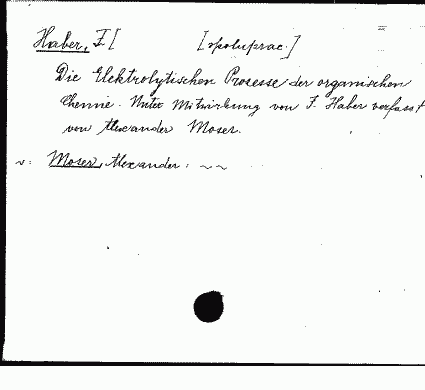 Haber, F. [ [spoluprac.]
Die Elektrolytischen Prozesse der organischen
Chemie. Unter Mitwirkung von F. Haber verfasst
von Alexander Moser.
v: Moser, Alexander: ~~